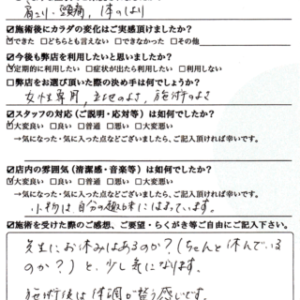 肩こり・頭痛,体のはり
☑施術後にカラダの変化はご実感頂けましたか?
☑できた □どちらとも言えない □できなかった □その他
☑今後も弊店を利用したいと思いましたか?
☑定期的に利用したい □症状が出たら利用したい □利用しない
□弊店をお選び頂いた際の決め手は何でしょうか?
女性専用,立地のよさ,施術のよさ
☑スタッフの対応(ご説明・応対等)は如何でしたか?
☑大変良い □良い □普通 □悪い □大変悪い
→気になった・気に入った点などございましたら、ご記入頂ければ幸いです。
☑店内の雰囲気(清潔感・音楽等)は如何でしたか?
☑大変良い □良い □普通 □悪い □大変悪い
→気になった・気に入った点などございましたら、ご記入頂ければ幸いです。
小物は自分の趣味にはまっています。
☑施術を受けた際のご感想、ご要望・らくがき等ご自由にご記入下さい。
先生にお休みはあるのか?(ちゃんと休んでいる
のか?)と、少し気になります。
施術後は体調が整う感じです。